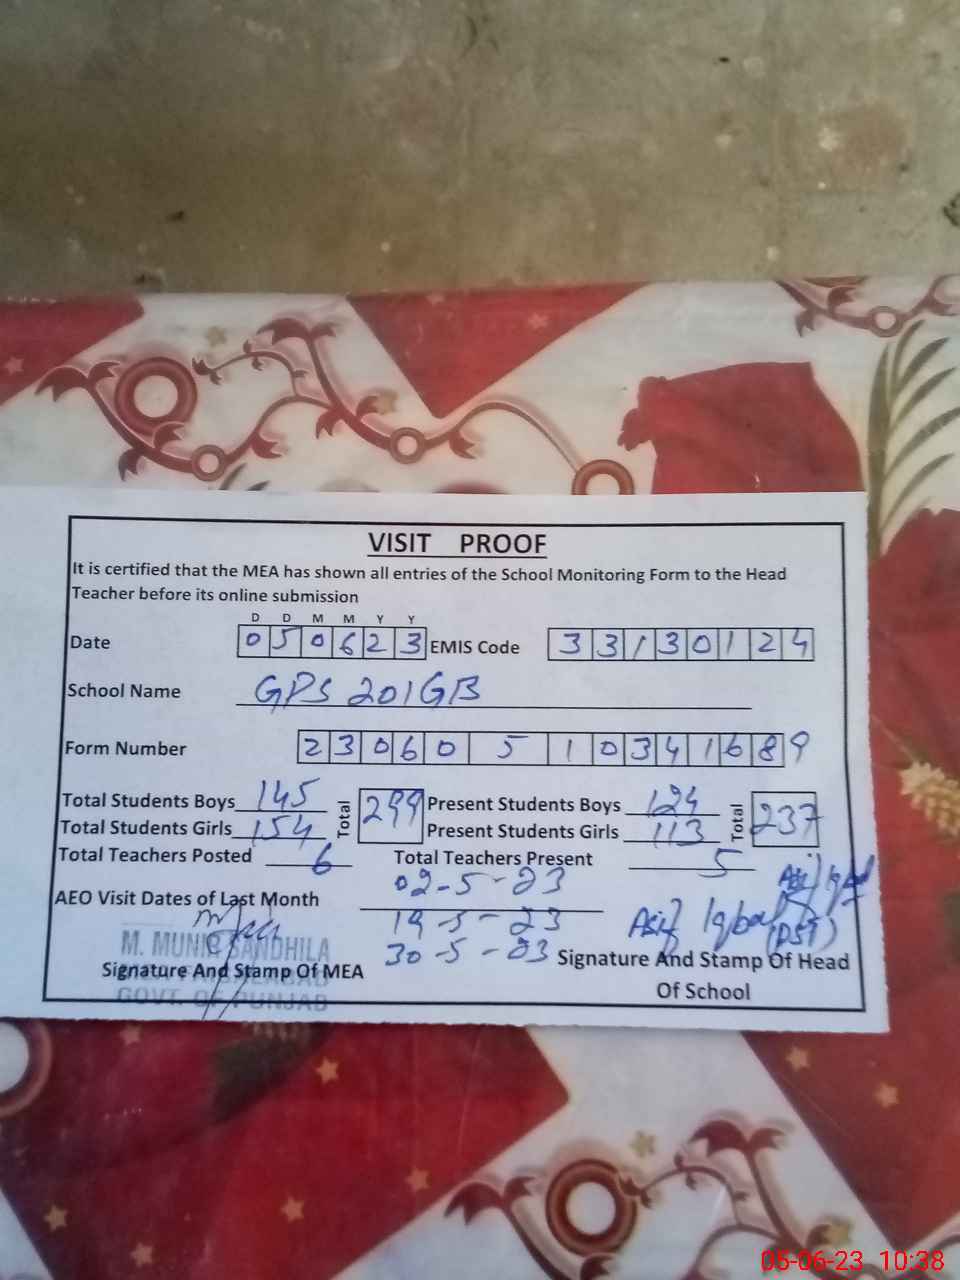 VISIT PROOF
It is certified that the MEA has shown all entries of the School Monitoring Form to the Head
Teacher before its online submission
D D M M Y Y
Date 050623 EMIS Code 33130124
School Name GPS 201GB
Form Number 23060510341689
Total Students Boys 145 Total 299 Present Students Boys 124 Total 237
Total Students Girls 154 Present Students Girls 113
Total Teachers Posted 6 Total Teachers Present 5
AEO Visit Dates of Last Month 02-5-23
19-5-23
30-5-23
Asif Iqbal
Asif Iqbal
(PST)
M. MUNIR SANDHILA
Signature And Stamp Of MEA
GOVT. OF PUNJAB
Signature And Stamp Of Head
Of School
05-06-23 10:38